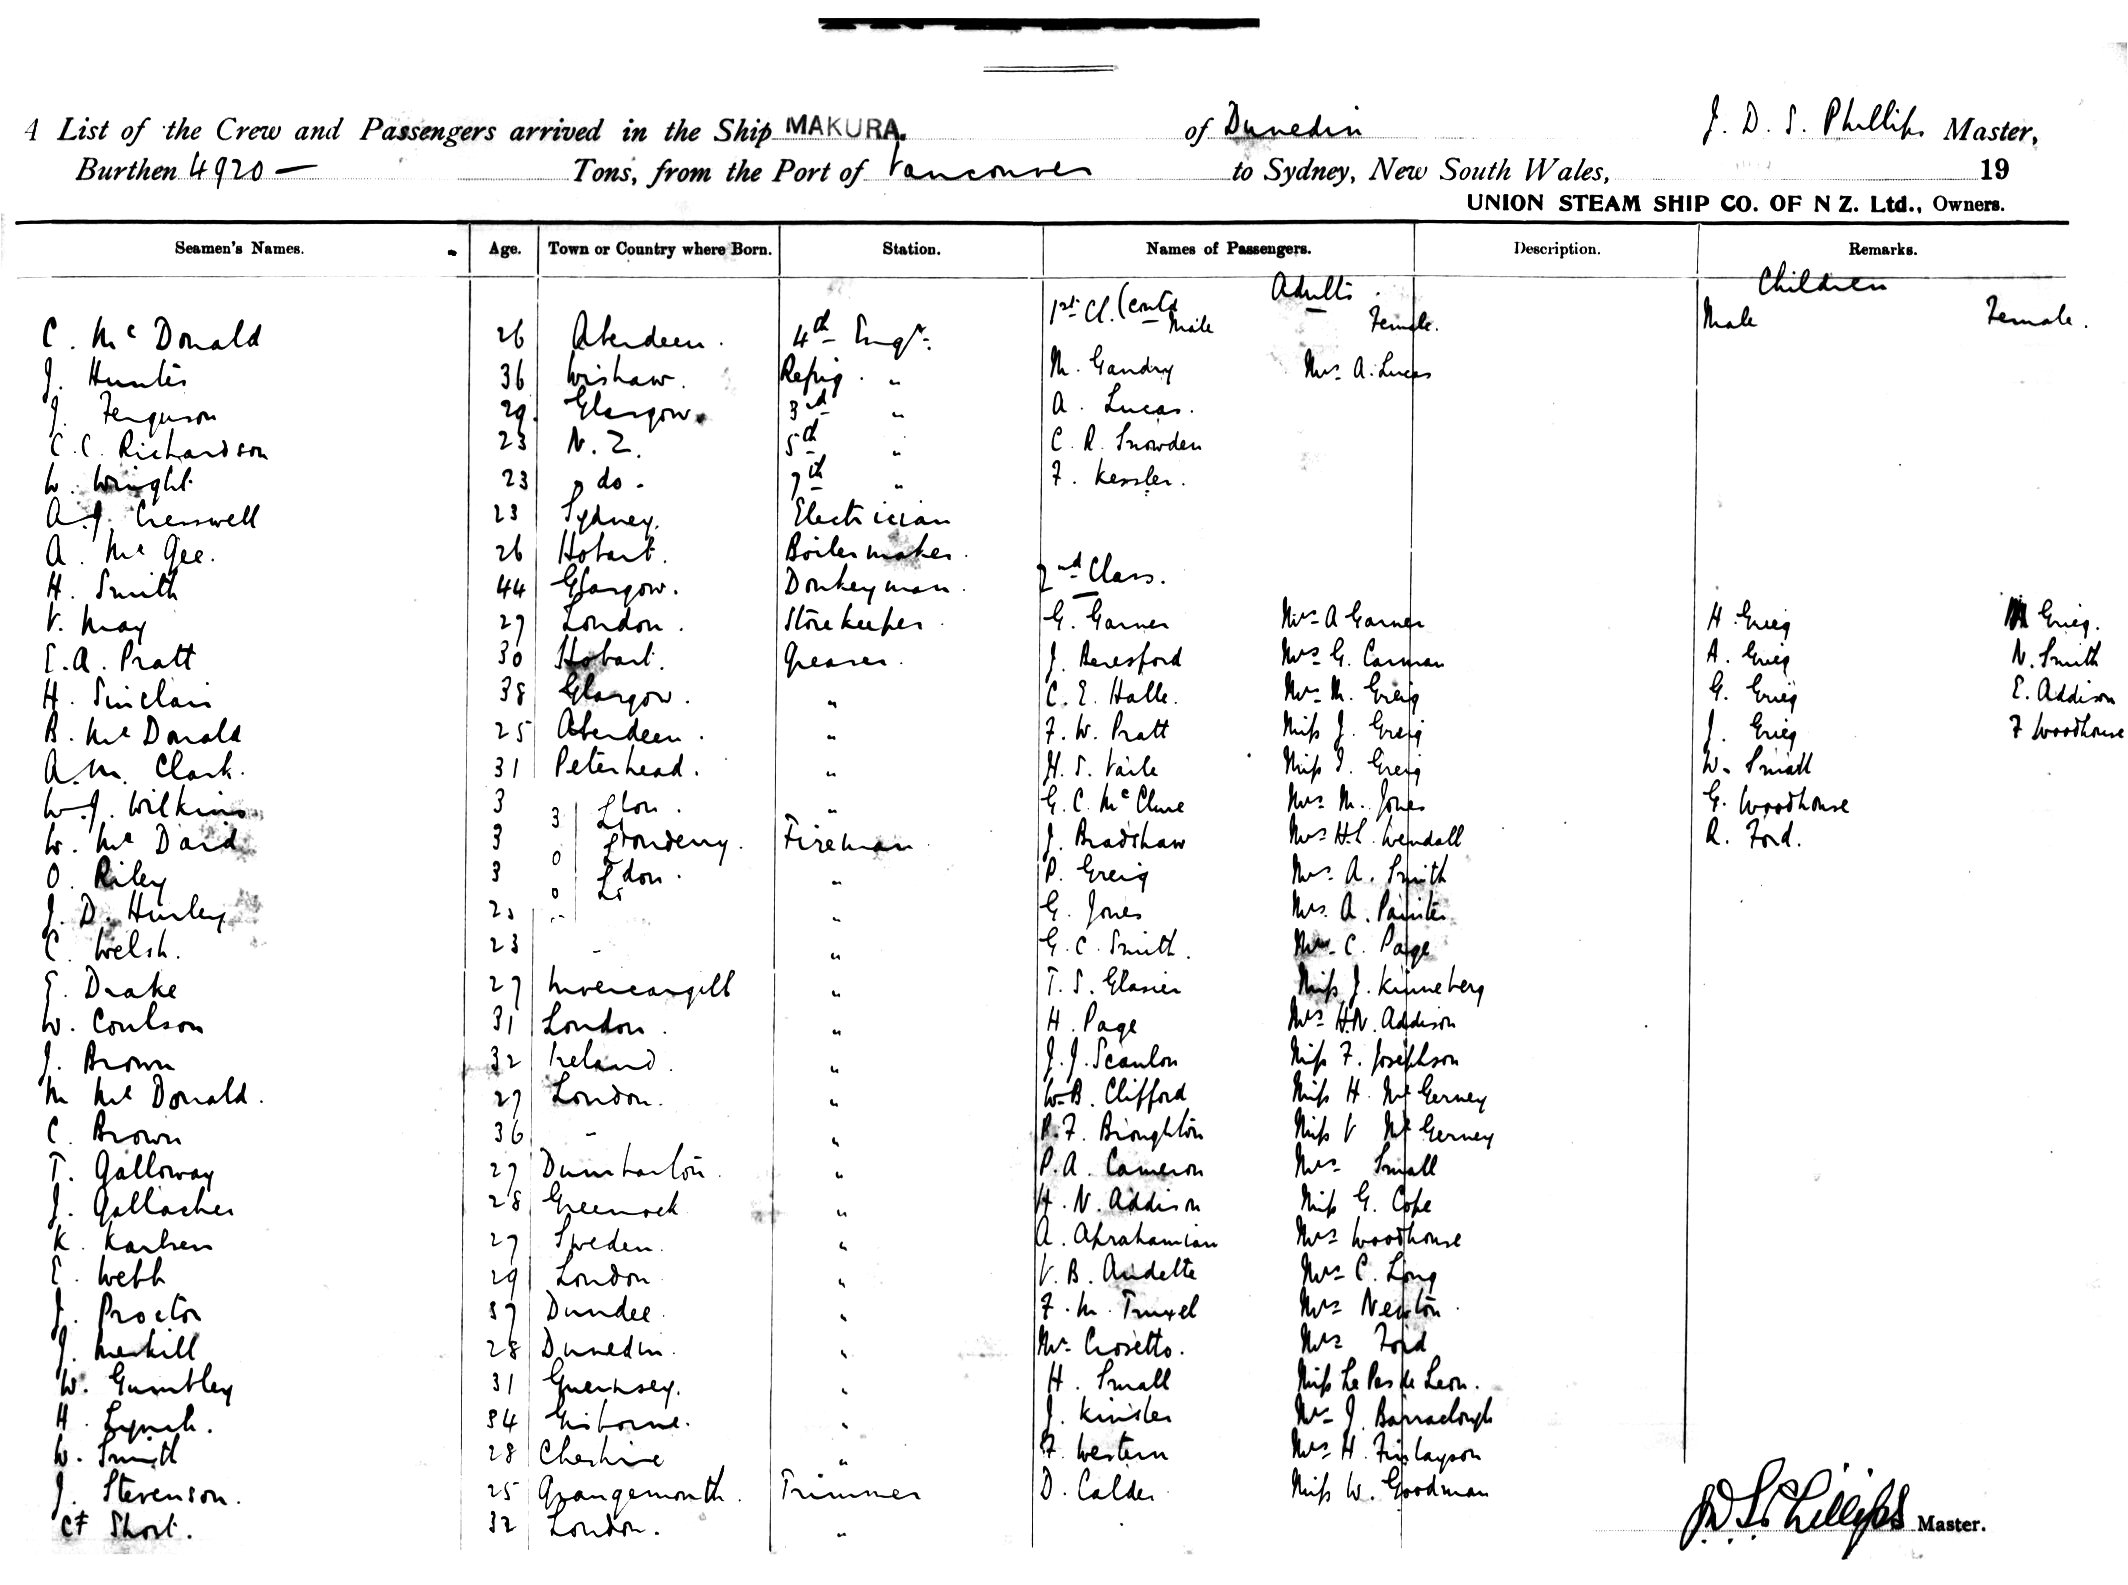 A List of the Crew and Passengers arrived in the Ship MAKURA. of Dunedin J. D. S. Phillips Master,
Burthen 4920 — Tons, from the Port of Vancouver to Sydney, New South Wales, 19
UNION STEAM SHIP CO. OF N Z. Ltd., Owners.
Seamen's Names. Age. Town or Country where Born. Station. Names of Passengers. Description. Remarks.
1st Cl. (contd Adults. Children
Male Female. Male Female.
C. McDonald 26 Aberdeen. 4th Engr.
J. Hunter 36 Wishaw. Refrig. " M. Gandry Mrs A. Lucas
J. Ferguson 29. Glasgow. 3rd " A. Lucas.
C. C. Richardson 23 N. Z. 5th " C. R. Snowden
W. Wright 23 do. 7th " F. Kessler.
A. J. Cresswell 23 Sydney. Electrician
A. McGee. 26 Hobart. Boilermaker.
H. Smith 44 Glasgow. Donkeyman. 2nd Class.
V. May 27 London. Storekeeper. G. Garner Mrs A Garner H. Grieg M Grieg.
E. A. Pratt 30 Hobart. Greaser. J. Beresford Mrs G. Carman A. Grieg N. Smith
H. Sinclair 38 Glasgow. " C. E. Halle. Mrs M. Greig G. Grieg E. Addison
B. McDonald 25 Aberdeen. " F. W. Pratt Miss J. Greig J. Grieg F Woodhouse
A. M. Clark. 31 Peterhead. " H. S. Vaile Miss I. Greig W. Small
W. J. Wilkins 3 3 " G. C. McClure Mrs M. Jones G. Woodhouse
W. McDaid 3 0 Fireman. J. Bradshaw Mrs H. L. Wendall R. Ford.
O. Riley 3 0 " P. Greig Mrs A. Smith
J. D. Hurley " G. Jones Mrs A. Painter
C. Welsh. 23 " G. C. Smith. Mrs C. Page
E. Drake 27 Invercargill " T. S. Glasier Miss J. Kinneberg
W. Coulson 31 London. " H. Page Mrs H. N. Addison
J. Brown 32 Ireland. " J. J. Scanlon Miss F. Josephson
M McDonald. 27 London. " W. B. Clifford Miss H. McGerney
C. Brown 36 " " P. F. Broughton Miss V McGerney
T. Galloway 27 Dumbarton. " P. A. Cameron Mrs Small
J. Gallacher 28 Greenock " H. N. Addison Miss G. Cope
K. Karlsen 27 Sweden. " A. Abrahamian Mrs Woodhouse
E. Webb 29 London " V. B. Audette Mrs C. Long
J. Proctor 37 Dundee. " F. M. Truxel Mrs Newton.
J. Merkill 28 Dunedin. " Mr Crosetto. Mrs Ford
W. Gumbley 31 Guernsey. " H. Small Miss Le Pas de Leon.
H. Lynch. 34 Gisborne. " J. Kinsler Mrs J. Barraclough
W. Smith 28 Cheshire " F. Western Mrs H. Finlayson
J. Stevenson. 25 Grangemouth. Trimmer D. Calder Miss W. Goodman
CF Short. 32 London. "
J. D. S. Phillips Master.